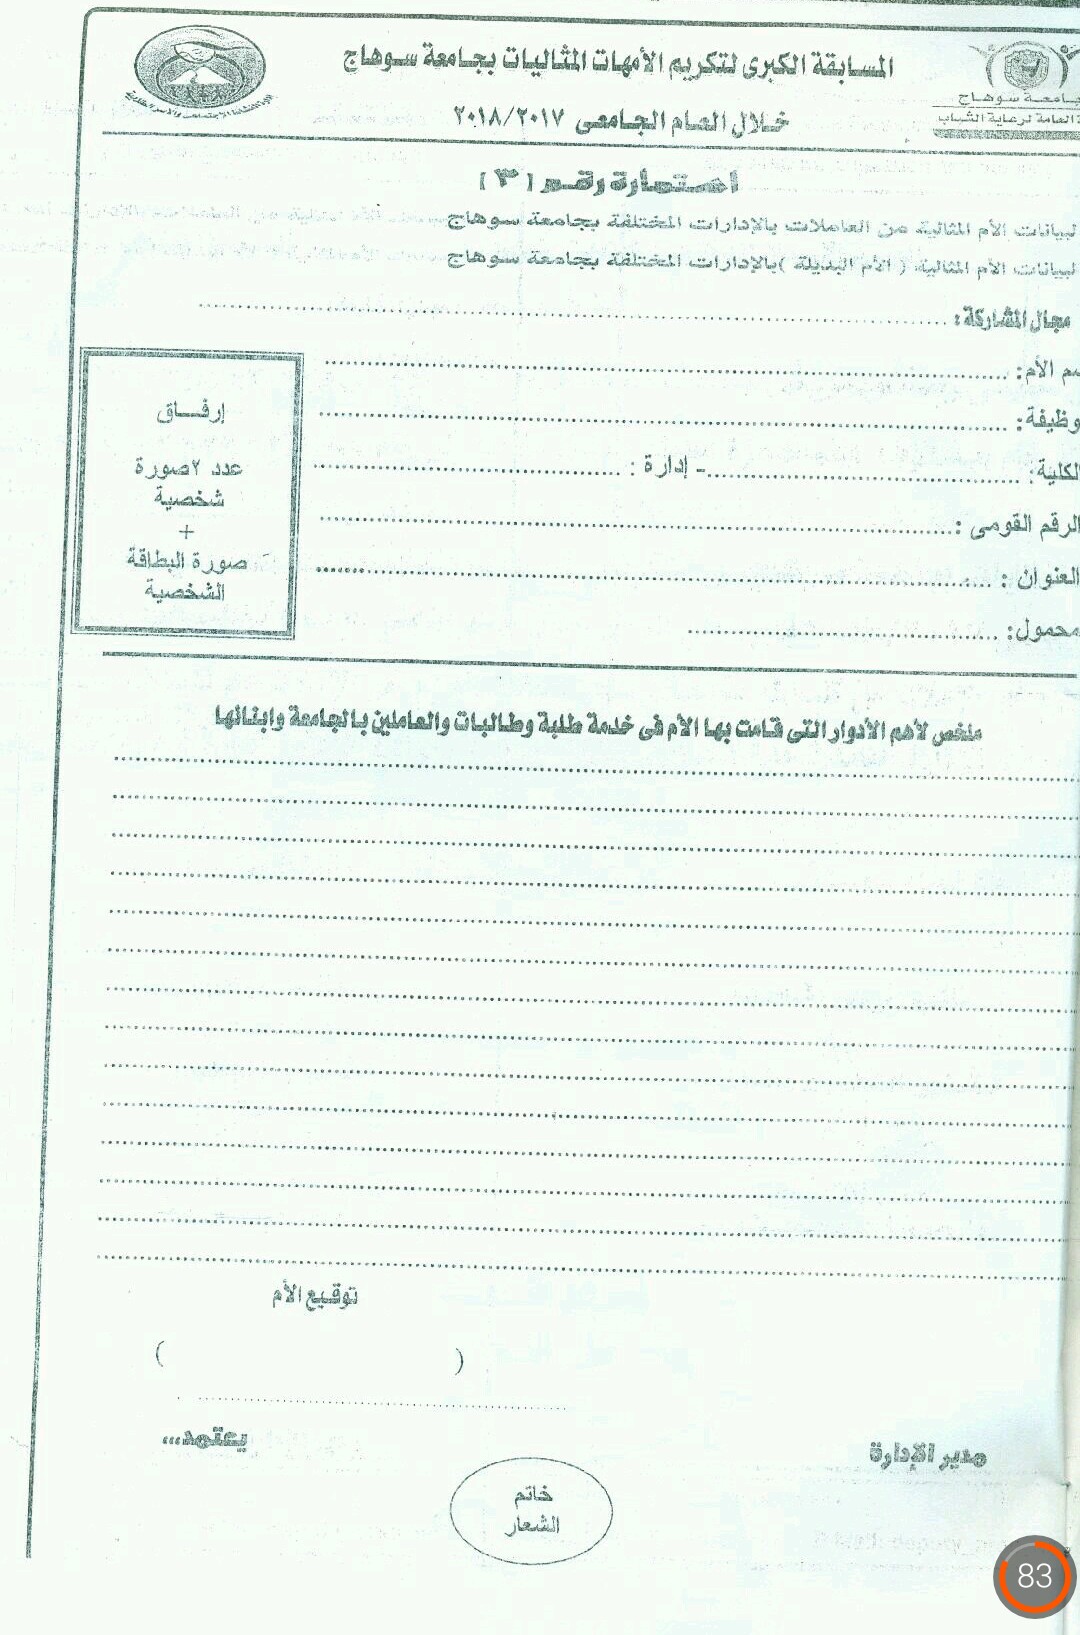 المسابقة الكبرى لتكريم الأمهات المثاليات بجامعة سوهاج
خلال العام الجامعى ٢٠١٨/٢٠١٧
جامعة سوهاج
العامة لرعاية الشباب
استمارة رقم [ ٣ ]
لبيانات الأم المثالية من العاملات بالإدارات المختلفة بجامعة سوهاج
لبيانات الأم المثالية ( الأم البديلة )بالإدارات المختلفة بجامعة سوهاج
مجال المشاركة:
سم الأم:
وظيفة:
لكلية: - إدارة :
الرقم القومى :
العنوان :
محمول:
إرفــاق
عدد ٢صورة
شخصية
+
صورة البطاقة
الشخصية
ملخص لأهم الأدوار التى قامت بها الأم فى خدمة طلبة وطالبات والعاملين بالجامعة وابنائها
توقيع الأم
( )
يعتمد...
مدير الإدارة
خاتم
الشعار
83